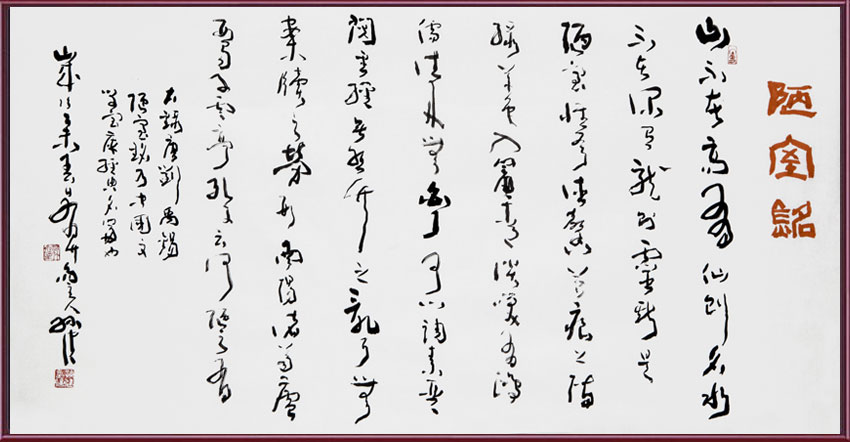 陋室銘
山不在高有仙則名水
不在深有龍則靈斯是
陋室惟吾德馨苔痕上階
綠草色入簾青談笑有鴻
儒往來無白丁可以調素琴
閱金經無絲竹之亂耳無
案牘之勞形南陽諸葛廬
西蜀子雲亭孔子云何陋之有
右錄唐劉禹錫
陋室銘乃中國文
學寶庫經典名篇也
歲次